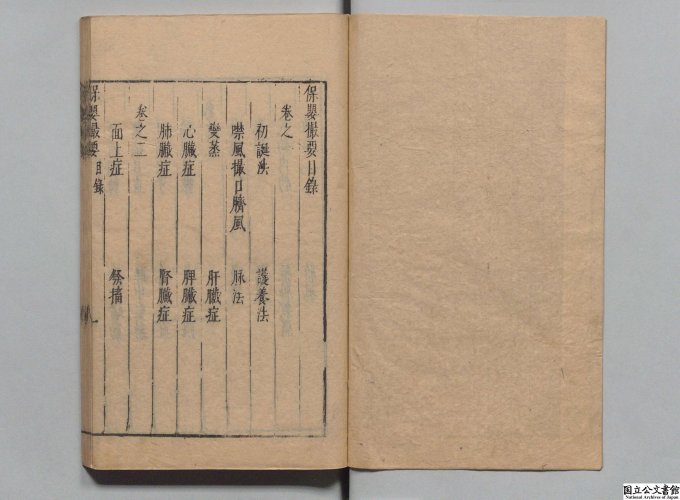 保嬰撮要目錄
卷之一
初誕法 護養法
噤風撮口臍風 脉法
變蒸 肝臟症
心臟症 脾臟症
肺臟症 腎臟症
卷之二
面上症
保嬰撮要 目錄
国立公文書館
National Archives of Japan